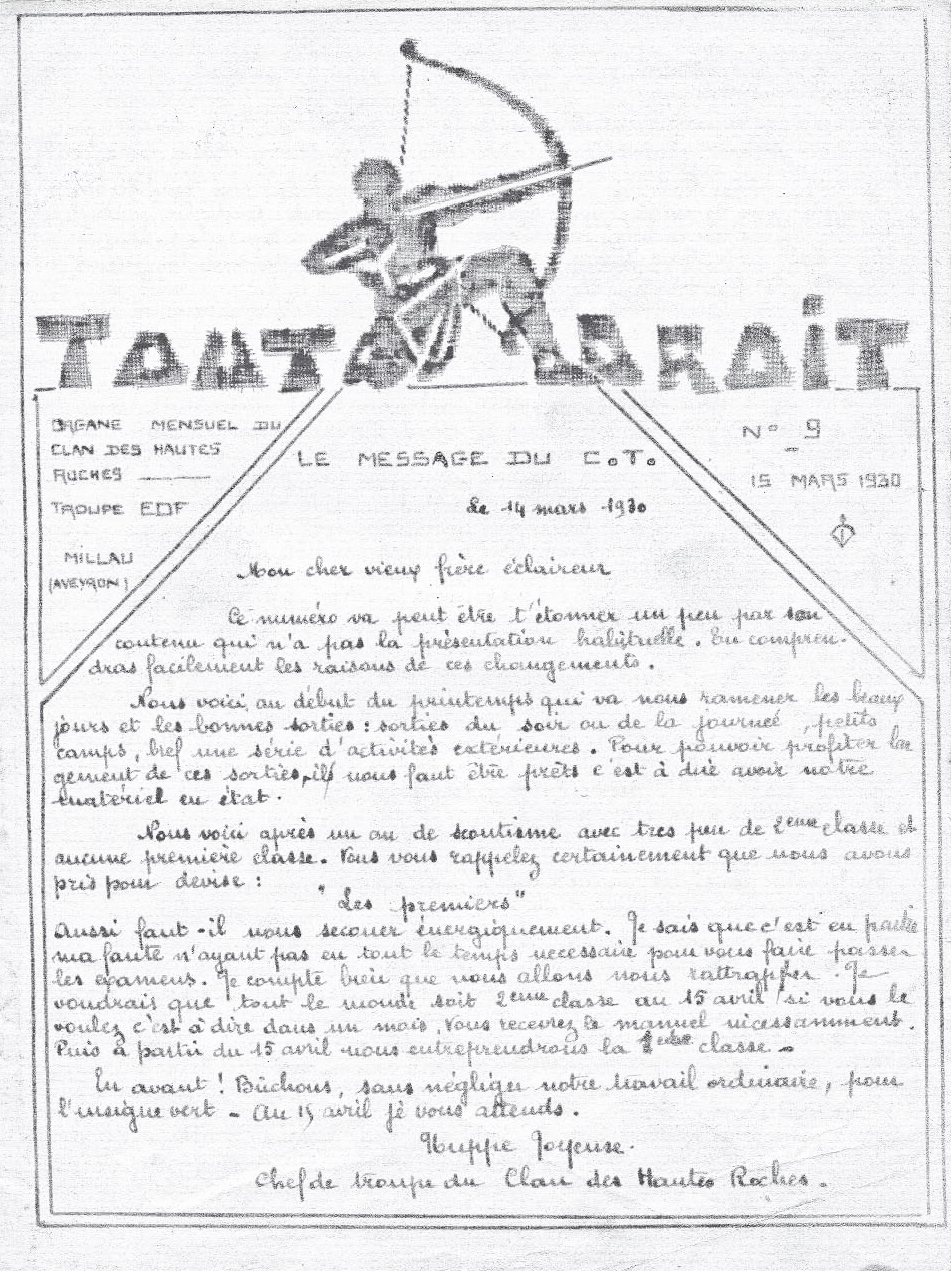 TOUT DROIT
ORGANE MENSUEL DU
CLAN DES HAUTES
ROCHES
TROUPE EDF
MILLAU
(AVEYRON)
N° 9
15 MARS 1930
LE MESSAGE DU C.T.
Le 14 mars 1930
Mon cher vieux frère éclaireur
Ce numéro va peut être t'étonner un peu par son
contenu qui n'a pas la présentation habituelle. Tu compren-
dras facilement les raisons de ces changements.
Nous voici, au début du printemps qui va nous ramener les beaux
jours et les bonnes sorties : sorties du soir ou de la journeé, petits
camps, bref une série d'activités extérieures. Pour pouvoir profiter lar
gement de ces sorties, il nous faut être prêts c'est à dire avoir notre
matériel en état.
Nous voici après un an de scoutisme avec tres peu de 2ème classe et
aucune première classe. Vous vous rappelez certainement que nous avons
pris pour devise :
"Les premiers"
Aussi faut-il nous secouer énergiquement. Je sais que c'est en partie
ma faute n'ayant pas eu tout le temps necessaire pour vous faire passer
les examens. Je compte bien que nous allons nous rattrapper. Je
voudrais que tout le monde soit 2ème classe au 15 avril si vous le
voulez c'est à dire dans un mois. Vous recevrez le manuel
Puis à partir du 15 avril nous entreprendrons la 1ère classe.
En avant ! Bûchons, sans négliger notre travail ordinaire, pour
l'insigne vert - Au 15 avril je vous attends.
Huppe Joyeuse.
Chef de troupe du Clan des Hautes Roches.